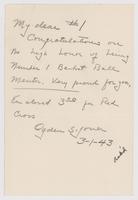 My dear #1
Congratulations on
the high honor of being
Number 1 Basket Ball
Mentor. Very proud for you,
Enclosed 3.00 for Red
Cross
Ogden S. Jones
3-1-43